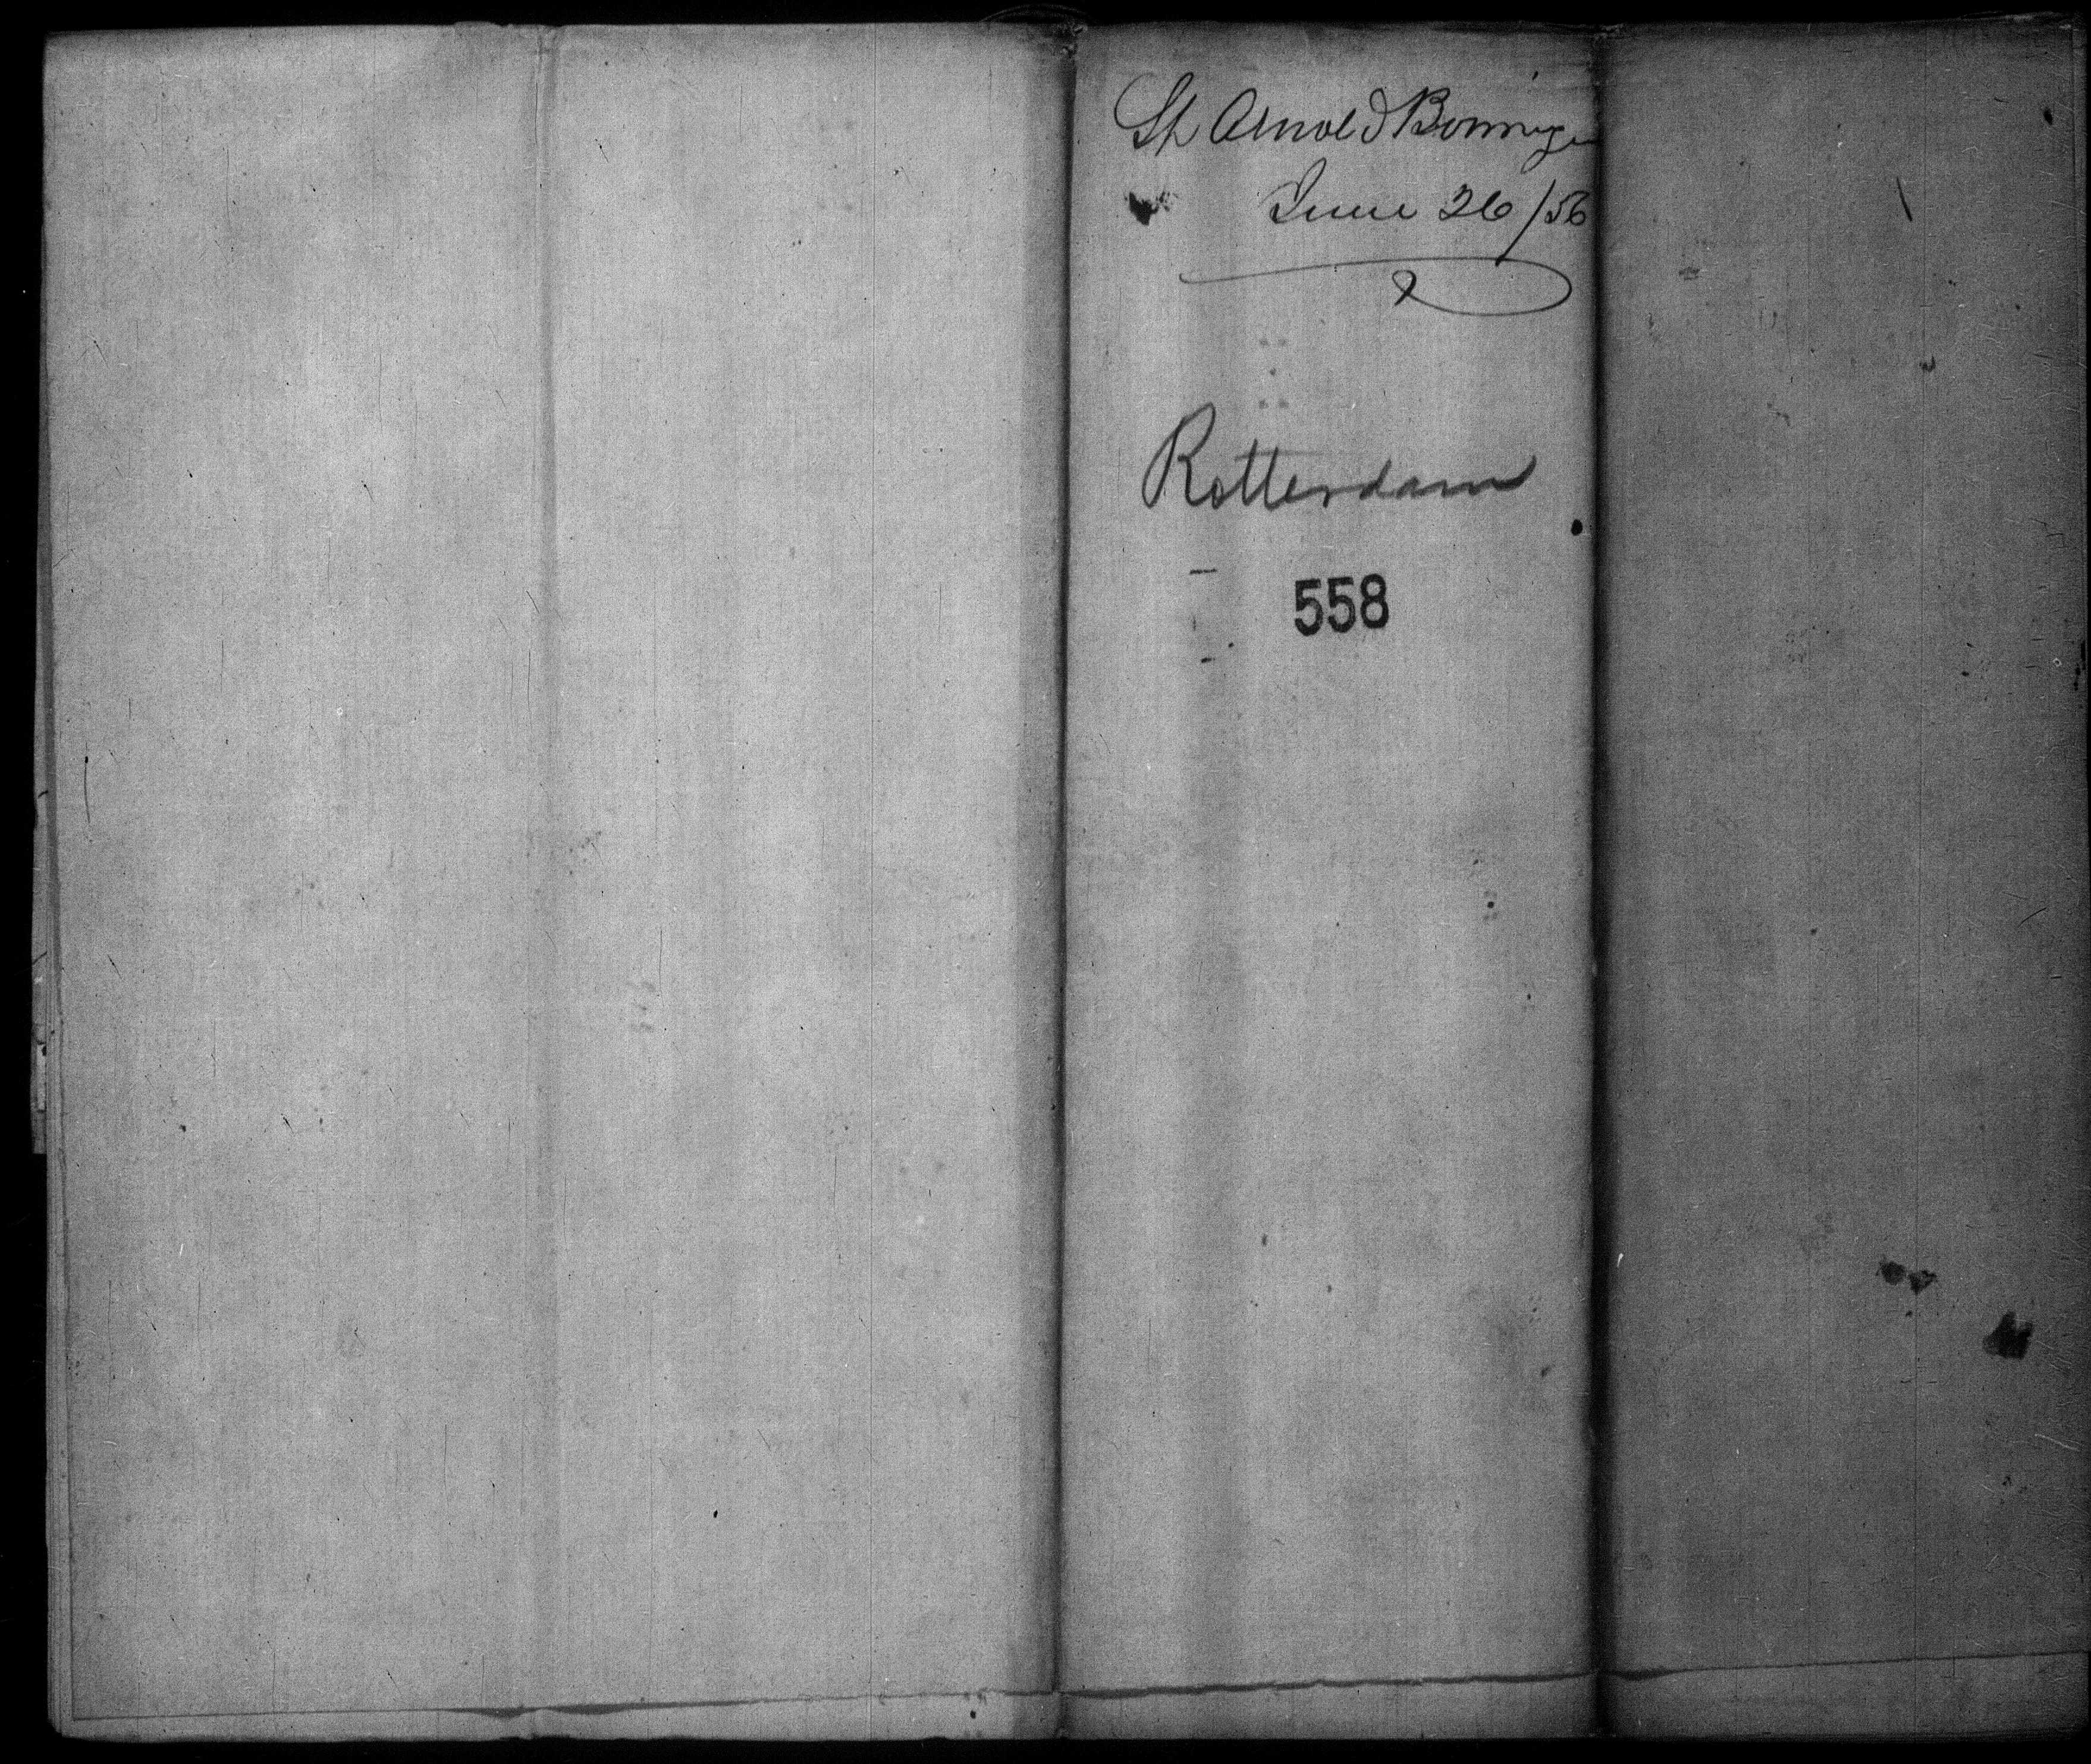 Sh Arnold Bonninger
June 26/56
Rotterdam
558